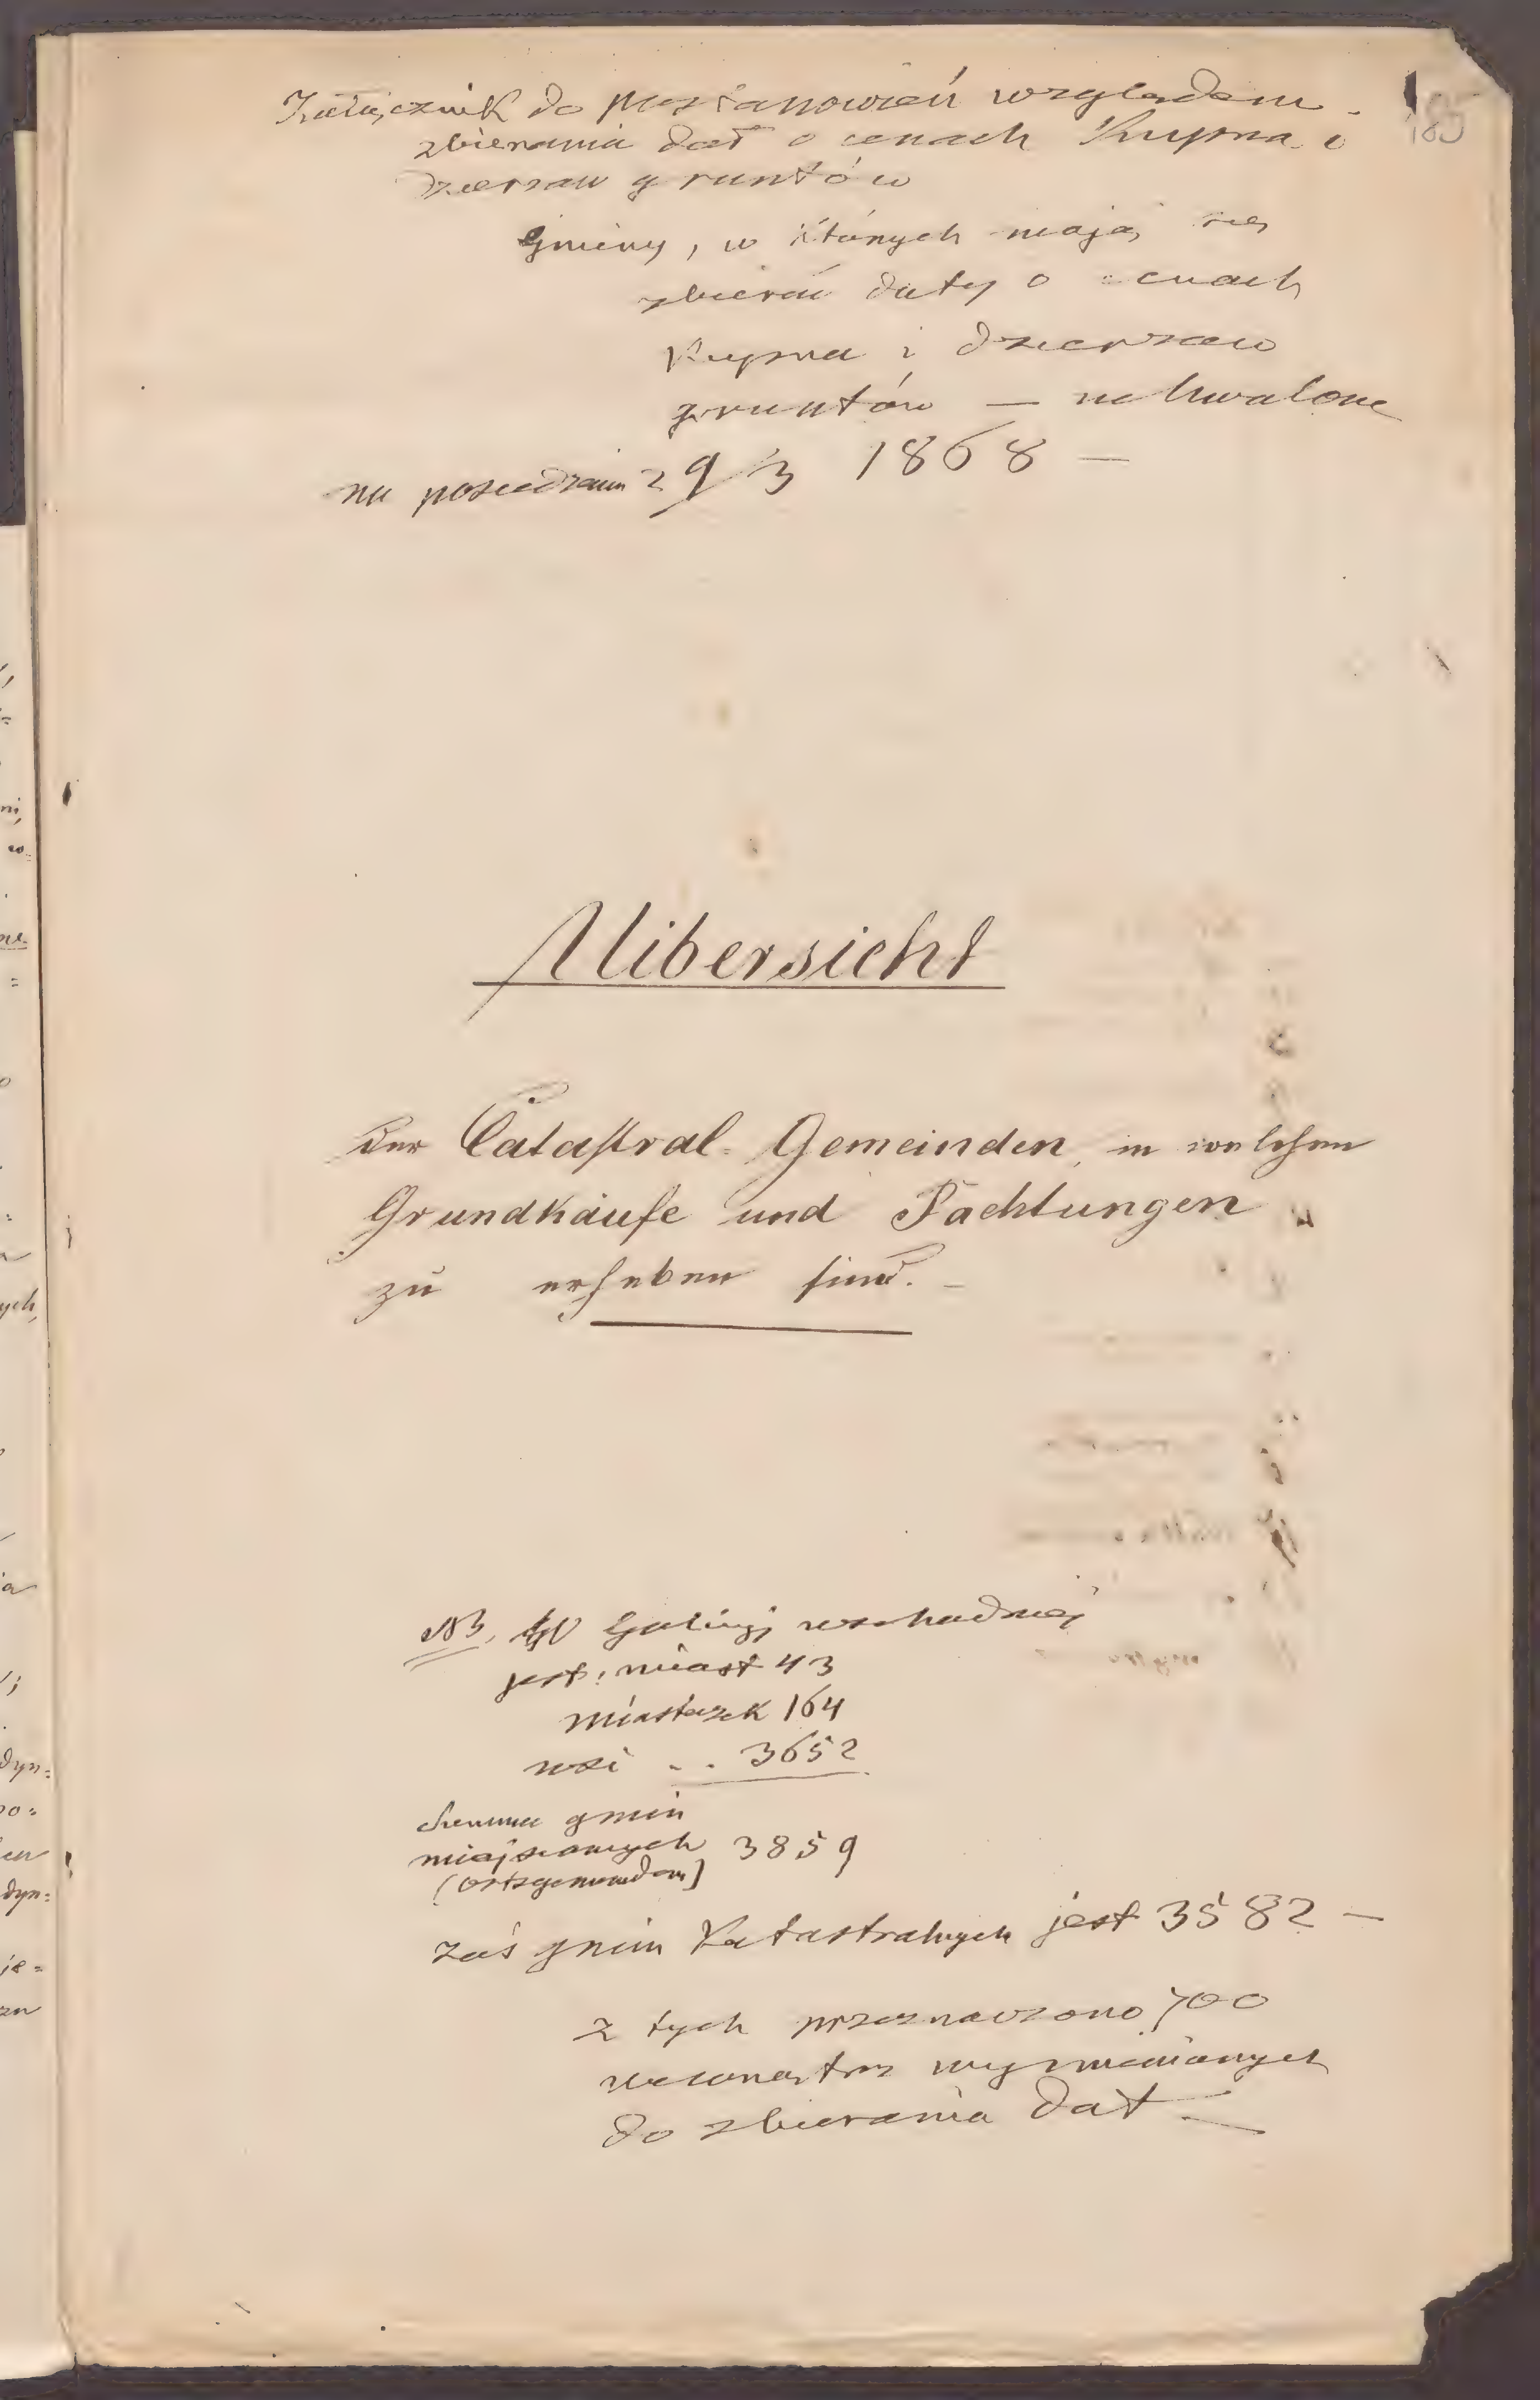 185
Załącznik do postanowień względem
zbierania dat o cenach Kupna i
dzierzaw gruntów
Gminy, w których mają się
zbierać daty o cenach
Kupna i dzierzaw
gruntów — uchwalone
na posiedzeniu 29/3 1868 —
Uibersicht
der Catastral-Gemeinden, in welchen
Grundkäufe und Pachtungen
zu erheben sind. –
NB. W Galicyi wschodniej
jest: miast 43
miasteczek 164
wsi . . 3652
Summa gmin
miejscowych 3859
(Ortsgemeinden)
zaś gmin Katastralnych jest 3582 —
z tych przeznaczono 700
wewnątrz wymienionych
do zbierania dat —